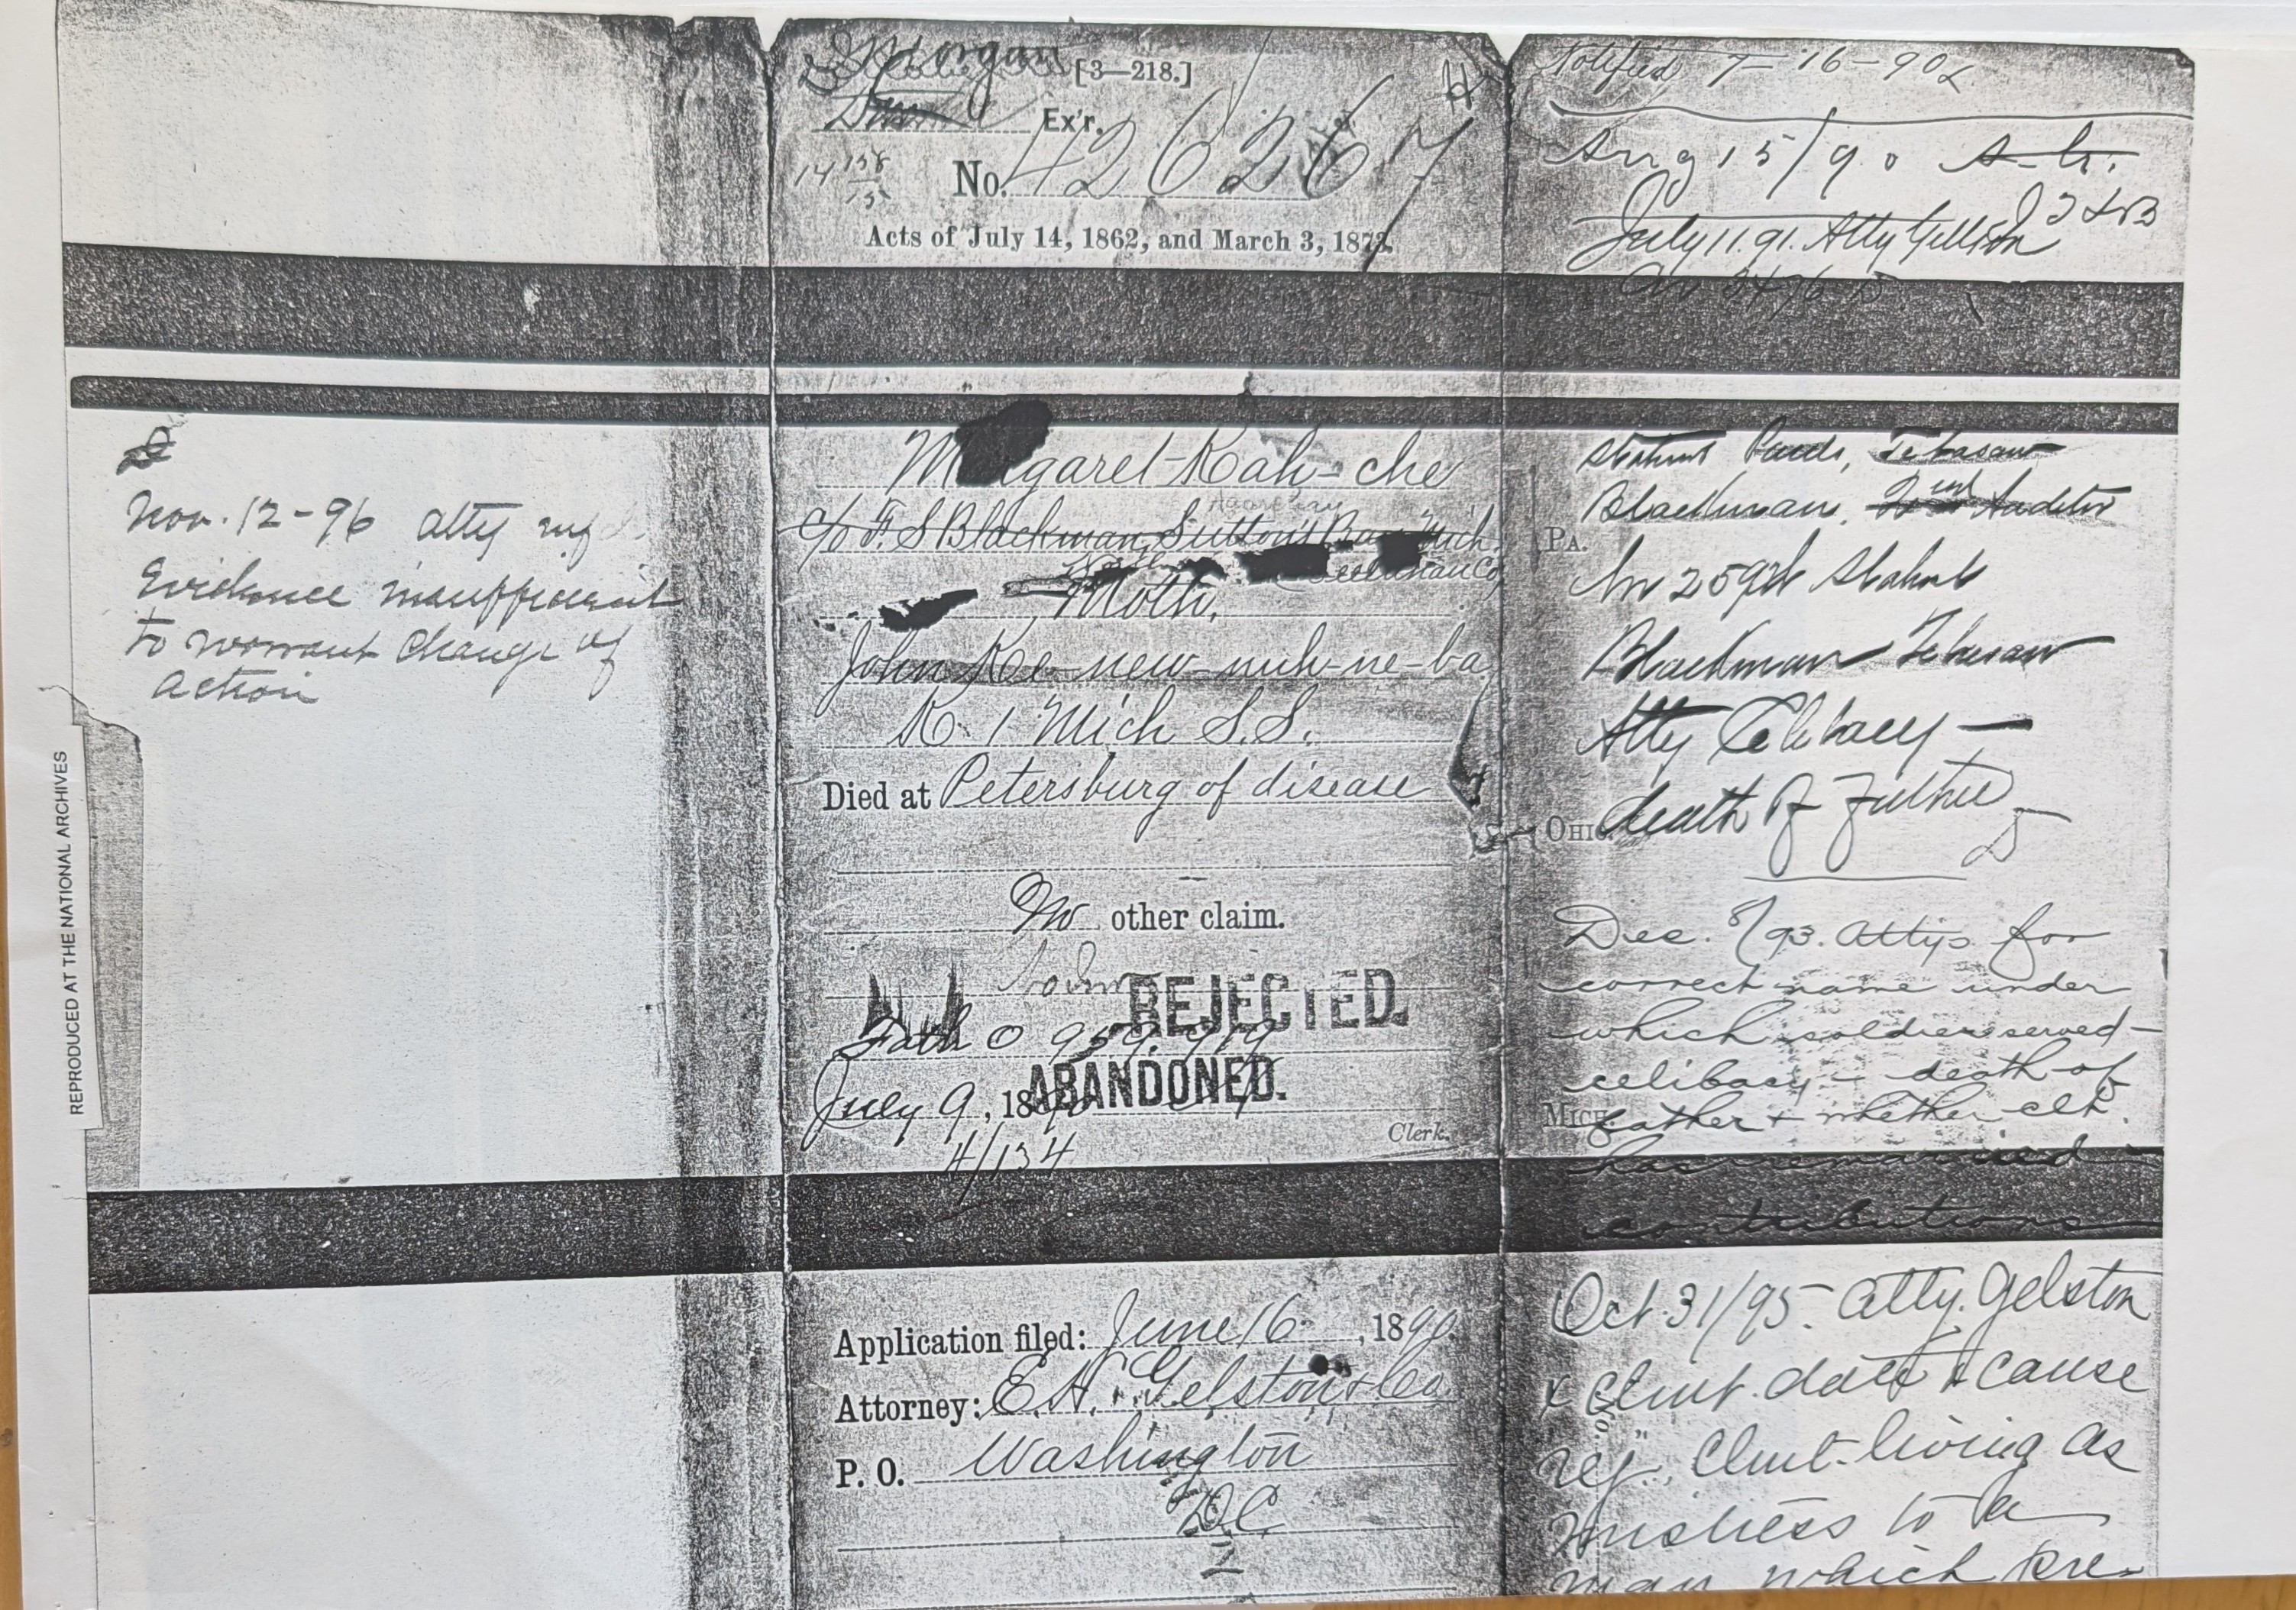 REPRODUCED AT THE NATIONAL ARCHIVES
Nov. 12-96 atty
Evidence insufficient
to warrant change of
action
Morgan
[3—218.]
Ex'r.
No. 426267
Acts of July 14, 1862, and March 3, 1873.
Margaret Kah-che
c/o F. S Blackman Sutton's Bay Mich.
Leelanau Co
Moth.
John Ke-new-nuh-ne-ba
K. 1 Mich S.S.
Died at Petersburg of disease
No other claim.
REJECTED.
Fath O 959.979
ABANDONED.
July 9, 1890
Clerk.
4/134
Application filed: June 16, 1890.
Attorney: E. H. Gelston & Co.
P. O. Washington
D.C.
Notified 7-16-90
Aug 15/90
July 11. 91. Atty Gelston
Blackman, Auditor
PA.
Blackman Tebasaw
Atty Celibacy —
OHIO
death of Father
Dec. 8/93. Attys for
correct name under
which soldier served—
celibacy - death of
MICH.
father & whether clt.
has remarried—
contributions
Oct. 31/95- Atty. Gelston
& Clmt. date & cause
rej. Clmt. living as
mistress to a
man which pre-